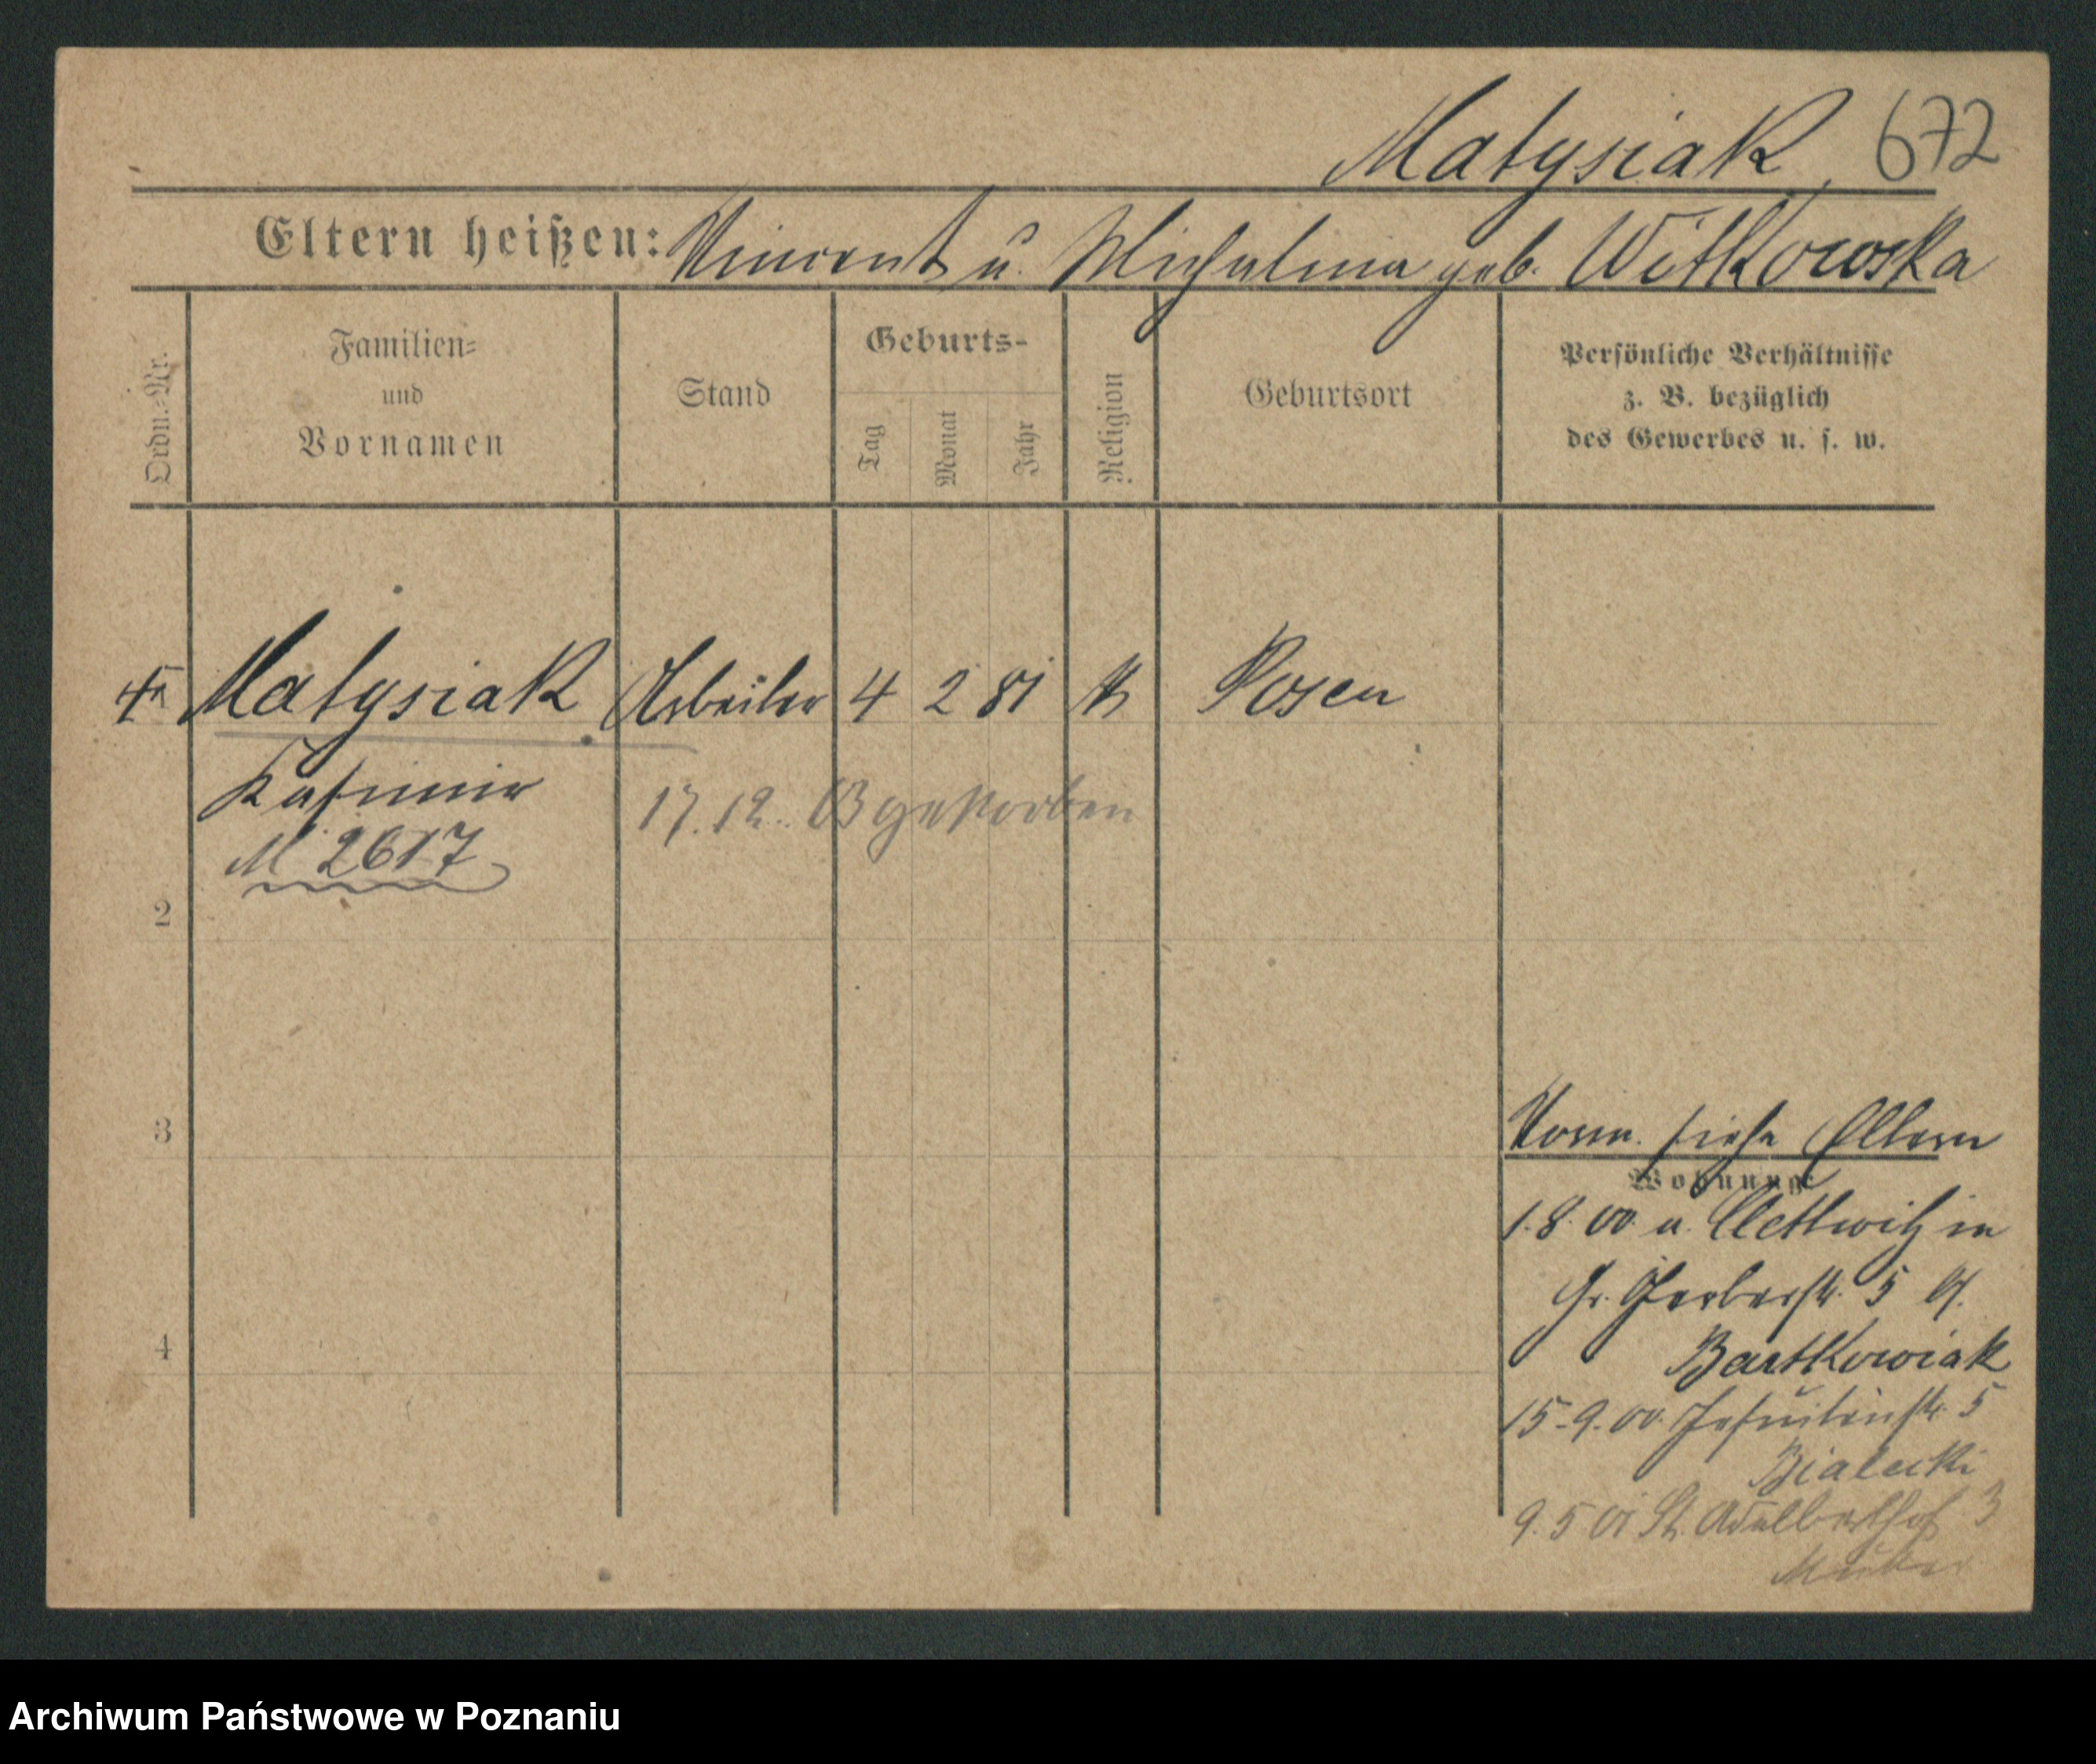 Matysiak 672
Eltern heißen: Vincent u. Michalina geb. Witkowska
Ordn.-Nr.
Familien-
und
Vornamen
Stand
Geburts-
Tag
Monat
Jahr
Religion
Geburtsort
Persönliche Verhältnisse
z. B. bezüglich
des Gewerbes u. s. w.
Matysiak Arbeiter 4 2 81 k Posen
Kasimir
17.12. 03 gestorben
M 2617
2
3
4
Vorm. siehe Eltern
Wohnung:
1.8.00. a. in
Gr. Gerberstr. 5
Bartkowiak
15.9.00. Jesuitenstr. 5
Bialecki
9.5 01 St. Adalberthof 3
Archiwum Państwowe w Poznaniu